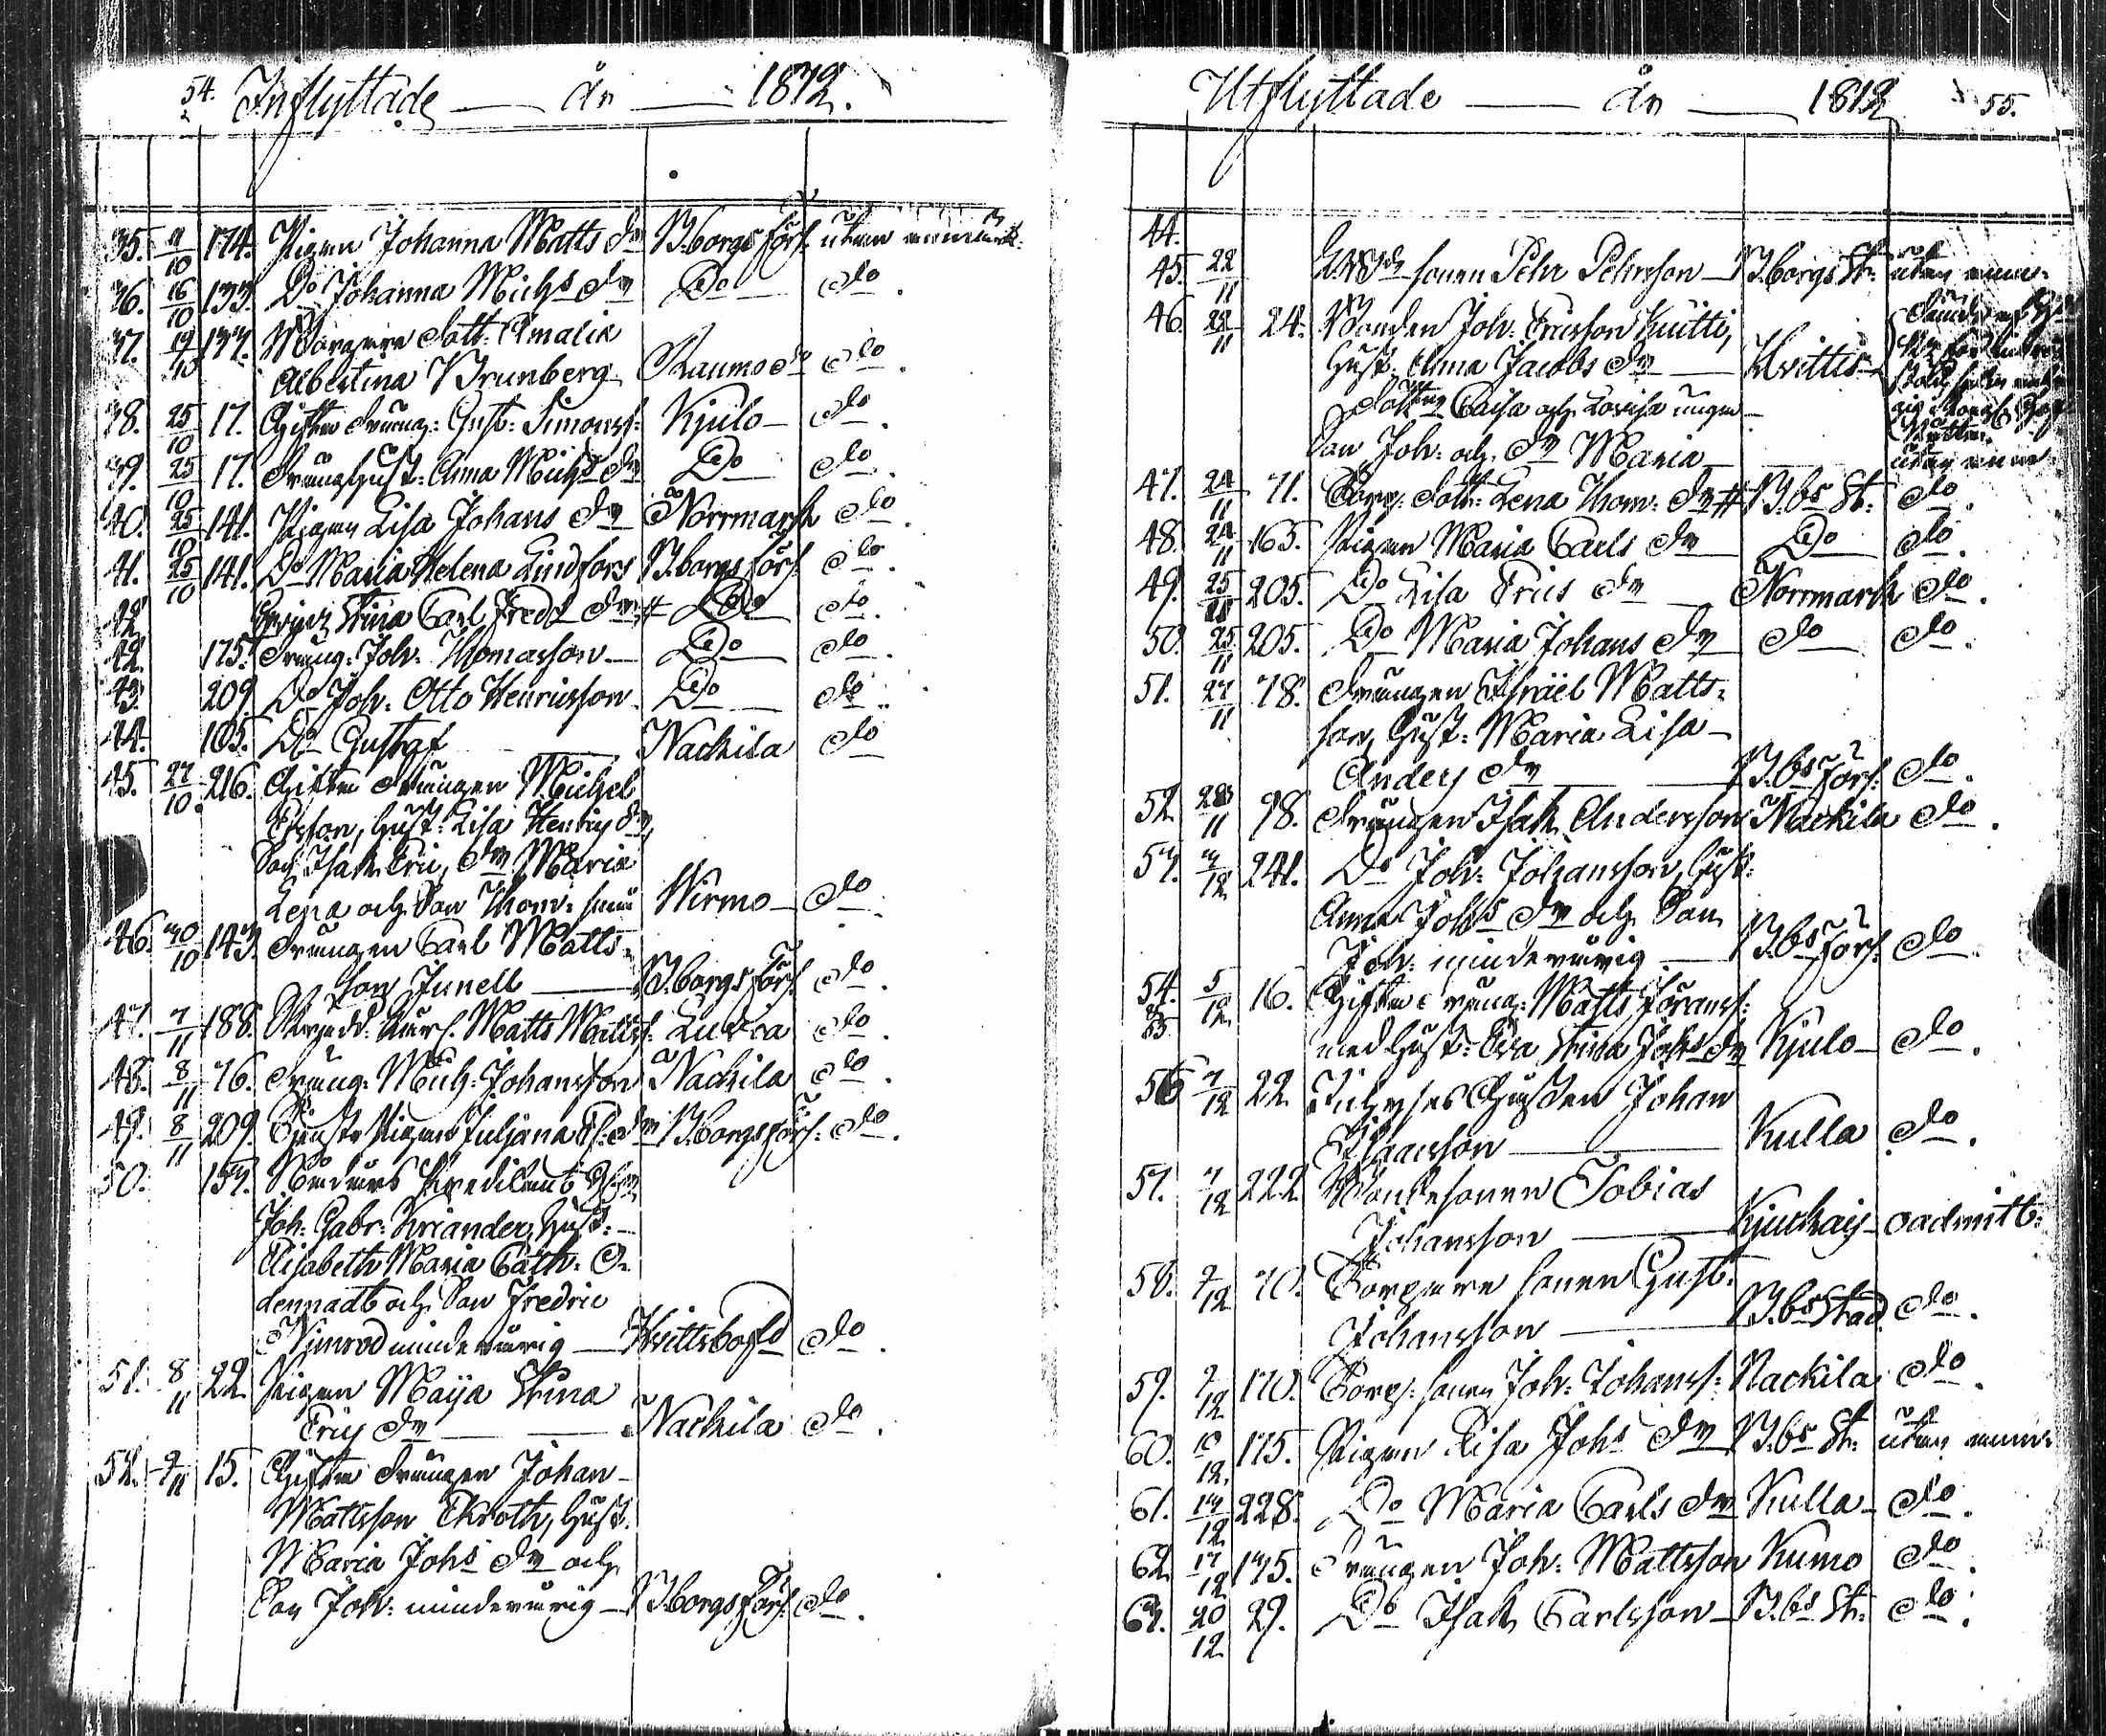 54. Inflyttade — år — 1812.
35. 9/10 174. Pigan Johanna Matts dr B:borgs förs: utan anmärk:
36. 16/10 133. Do Johanna Michs dr Do do.
37. 19/10 137. Borgare dott: Amalia
Albertina Brunberg Raumo do.
38. 25/10 17. Gifte dräng: Gust: Simonss: Kjulo — do.
39. 25/10 17. dräng Hust: Anna Michs dr Do do.
40. 25/10 141. Pigan Lisa Johans dr Norrmark do.
41. 25/10 141. Do Maria Helena Lindfors B:borgs förs: do.
42. Stina Carl Fredr dr # Do do.
42. 175. dräng: Joh: Thomasson — Do do.
43. 209. Do Joh: Otto Henricsson Do do.
44. 105. Do Gustaf — Nackila do
45. 27/10 216. Gifte drängen Michel
Ersson, Hust: Lisa Henrics dr,
Son Isak Eric, dr Maria
Lena och Son Thom: små Wirmo — do.
46. 30/10 143. drängen Carl Matts-
son Junell — B:borgs förs: do.
47. 7/11 188. Matts Matss: Luvia do.
48. 8/11 76. dräng: Mich: Johansson Nackila do.
49. 8/11 209. Pigan Juljana dr B:borgs förs: do.
50. 157.
Joh: Gabr: Kriander, Hust: —
Elisabeth Maria Cath: O-
dennadt och Son Fredric
Nimrod minderårig — do.
51. 8/11 22. Pigan Maja Stina
Erics dr — Nackila do.
52. 9/11 15. Gifte drängen Johan
Mattsson Ekroth, Hust:
Maria Johs dr och
Son Joh: minderårig — B:borgs förs: do.
Utflyttade — år — 1812 55.
44.
45. 22/11 sonen Pehr Pehrsson — B:borgs St: utan anm:
46. 22/11 24. Bonden Joh: Ericsson Knitti,
Hust: Anna Jacobs dr — Hvittis
döttr: Caisa och Lovisa
Son Joh: och dr Maria — utan anm:
47. 24/11 71. Torp: dott: Lena Thom: dr # B:bs St: do.
48. 24/11 165. Pigan Maria Carls dr Do do.
49. 25/11 205. Do Lisa Erics dr Norrmark do.
50. 25/11 205. Do Maria Johans dr do do.
51. 27/11 78. drängen Israël Matts-
son, Hust: Maria Lisa
Anders dr — B:bs förs: do.
52. 28/11 98. drängen Isak Andersson Nackila do.
53. 3/12 241. Do Joh: Johansson, Hust:
Anna Johs dr och Son
Joh: minderårig — B:bs förs: do.
54. & 55 5/12 16. Gifte dräng: Matts Göranss:
med Hust: Eva Stina Johs dr Kjulo — do.
56 7/12 22. Johan
Isaacsson — Kulla do.
57. 7/12 222. Bondesonen Tobias
Johansson — Kjuckais — oadmitt:
58. 9/12 70. Torpare sonen Gust:
Johansson — B:bs Stad do.
59. 9/12 170. Torp: sonen Joh: Johanss: Nackila do.
60. 10/12 175. Pigan Lisa Johs dr B:bs St: utan anm:
61. 13/12 228. Do Maria Carls dr Kulla — do.
62. 17/12 175. drängen Joh: Mattsson Kumo do.
63. 20/12 29. Do Isak Carlsson — B:bs St: do.